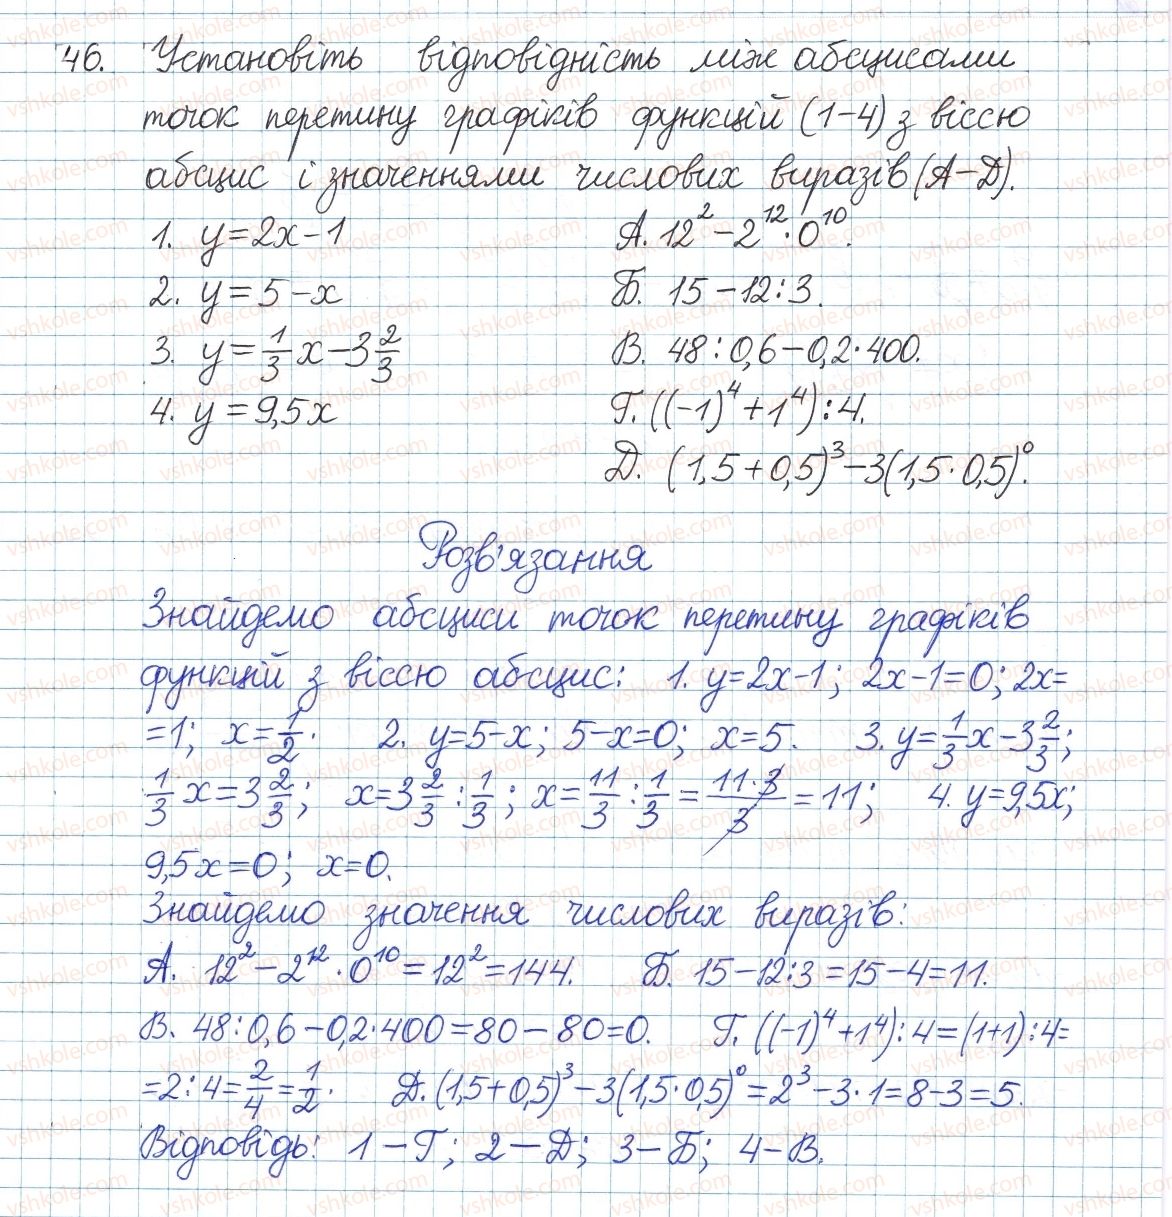 46. Установіть відповідність між абсцисами
точок перетину графіків функцій (1-4) з віссю
абсцис і значеннями числових виразів (А-Д).
1. y=2x-1 А. 12² - 2¹²·0¹⁰.
2. y=5-x Б. 15-12:3.
3. y=1/3 x-3 2/3 В. 48:0,6-0,2·400.
4. y=9,5x Г. ((-1)⁴+1⁴):4.
Д. (1,5+0,5)³-3(1,5·0,5)⁰.
Розв'язання
Знайдемо абсциси точок перетину графіків
функцій з віссю абсцис: 1. y=2x-1; 2x-1=0; 2x=
=1; x=1/2. 2. y=5-x; 5-x=0; x=5. 3. y=1/3 x-3 2/3;
1/3 x=3 2/3; x=3 2/3 : 1/3; x=11/3 : 1/3 = 11·3/3 =11; 4. y=9,5x;
9,5x=0; x=0.
Знайдемо значення числових виразів:
А. 12²-2¹²·0¹⁰=12²=144. Б. 15-12:3=15-4=11.
В. 48:0,6-0,2·400=80-80=0. Г. ((-1)⁴+1⁴):4=(1+1):4=
=2:4=2/4=1/2. Д. (1,5+0,5)³-3(1,5·0,5)⁰=2³-3·1=8-3=5.
Відповідь: 1-Г; 2-Д; 3-Б; 4-В.